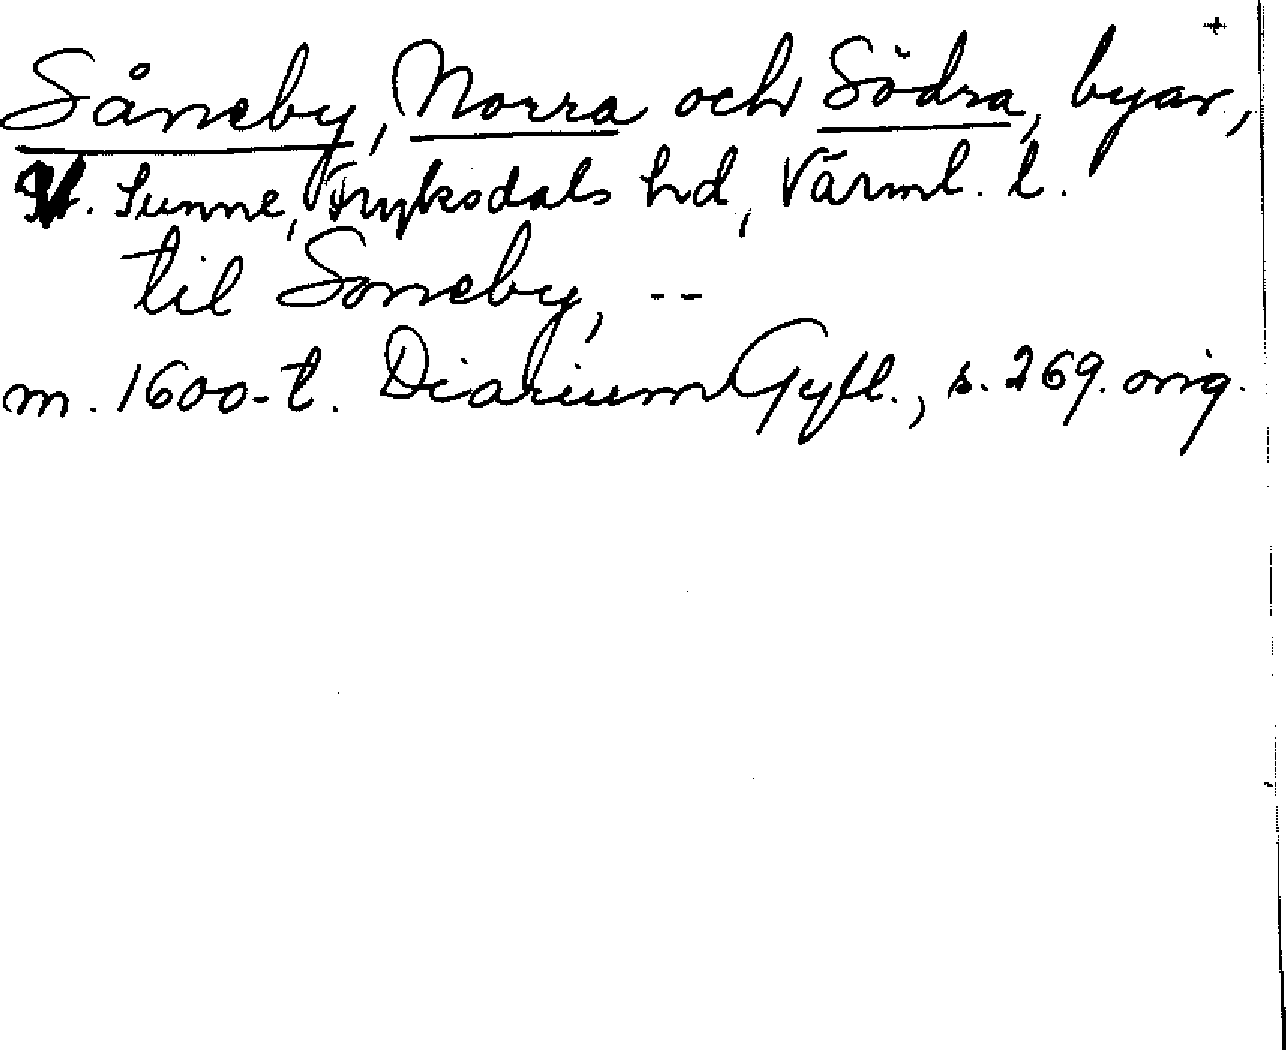 Såneby, Norra och Södra, byar,
St. Sunne, Fryksdals hd, Värml. l.
til Soneby, --
m. 1600-t. Diarium Gyll., s. 269. orig.